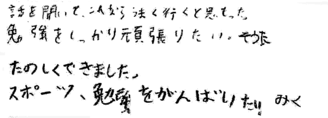 話を聞いて、これなら法く行くと思った
勉強をしっかり頑張りたい。そうた
たのしくできました。
スポーツ、勉強をがんばりたい!! みく